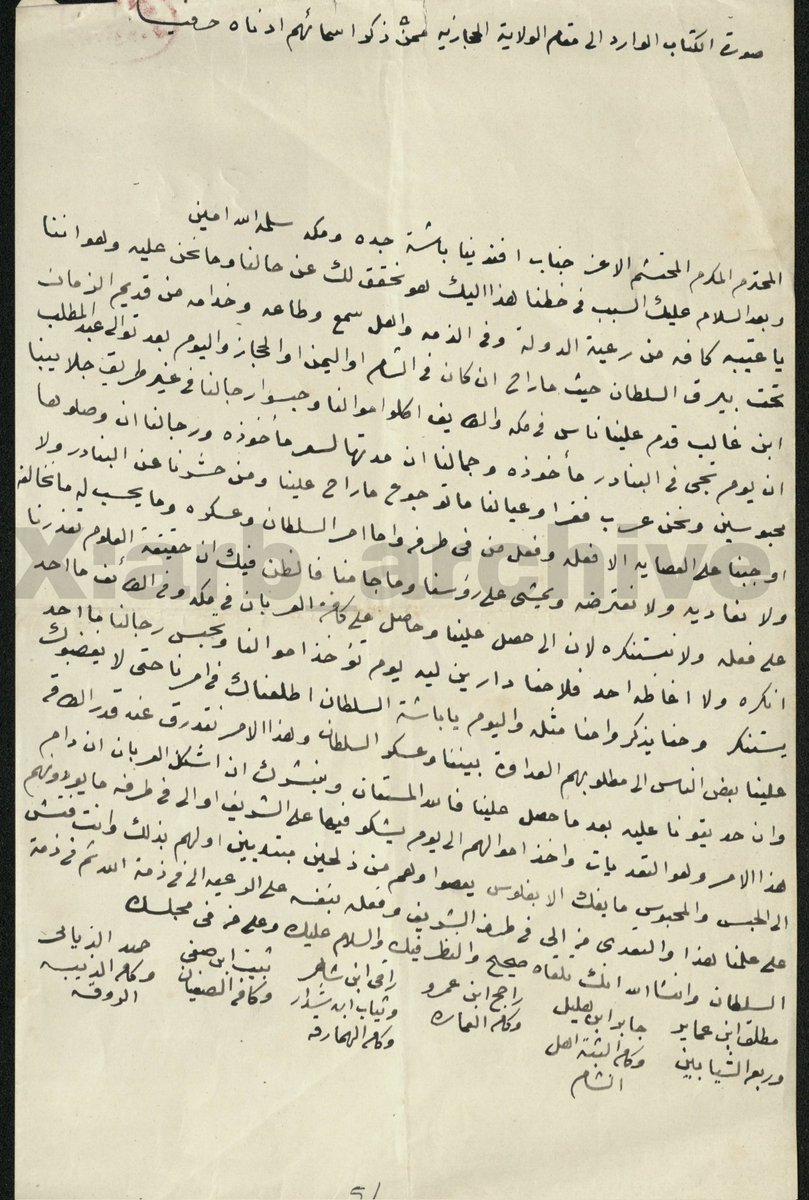 صورة الكتاب الوارد الى مقام الولاية الحجازيه ممن ذكر اسمائهم ادناه حرفيا
المحترم المكرم المحتشم الاعز جناب افندينا باشة جده ومكه سلمه الله امين
وبعد السلام عليك السبب في خطنا هذا اليك هو نحقق لك عن حالنا وما نحن عليه وهو اننا
يا عتيبه كافه من رعية الدولة وفي الذمه واهل سمع وطاعه وخدامه من قديم الزمان
تحت بيرق السلطان حيث ما راح ان كان في الشام او اليمن او الحجاز واليوم بعد توالى عبد المطلب
ابن غالب قدم علينا ناس في مكه والطايف اكلوا اموالنا وحبسوا رجالنا في غير طريق جلايبنا
ان يوم تجي في البنادر مأخوذه وجمالنا ان مدتها لسفر مأخوذه ورجالنا ان وصلوها
محبوسين ونحن عرب فقرا وعيالنا ماتو جوع ما راح علينا ومن حشرنا عن البنادر ولا
اوجبنا على العصايه الا فعله وفعل من في طرفه واما امر السلطان وعسكره وما يحسب له ما نخالفه
ولا نعاديه ولا نعترضه ويمشي على رؤسنا وما جا منا فالظن فيك ان حقيقة العلوم تعذرنا
على فعله ولا نستنكره لان الى حصل علينا وحاصل على كافة العربان في مكه وفي الطائف ما احد
انكره ولا اغاظه احد فلاحنا دارين ليه يوم تؤخذ اموالنا وتحبس رجالنا ما احد
يستنكر وحنا يذكر واحنا مثله واليوم يا باشة السلطان اطلعناك في امرنا حتى لا يغضبوك
علينا بعض الناس الى مطلوبهم العداوة بيننا وعسكر السلطان وهذا الامر نتدرق عنه قدر الطاقه
وان حد يتونا عليه بعد ما حصل علينا فالله المستعان وينشرك ان اشكل العربان ان دام
هذا الامر وهو التعديات واخذ اموالهم الى يوم يشكو فيها على الشريف او الى في طرفه ما يوردونهم
الى الحبس والمحبوس ما يفك الا بفلوس يعصوا وهم من ذلحين مبتديين اولهم بذلك وانت فتش
على علمنا هذا والتعدي من الي في طرف الشريف وفعله بنفسه على الرعيه الى في ذمة الله ثم في ذمة
السلطان وانشاالله انك تلقاه صحيح والنظر فيك والسلام عليك وعلى من في مجلسك
مطلق ابن عماير جابر ابن هليل راجح ابن عمرو راقي ابن شاهر ثبيت ابن صفي حمد الذيابي
وربعه الشيابين وكافة الثبتة اهل الشام وكافة النماره وثياب ابن شدار وكافة الهمارقه وكافة الصفيان وكافة الذيبه الروقه